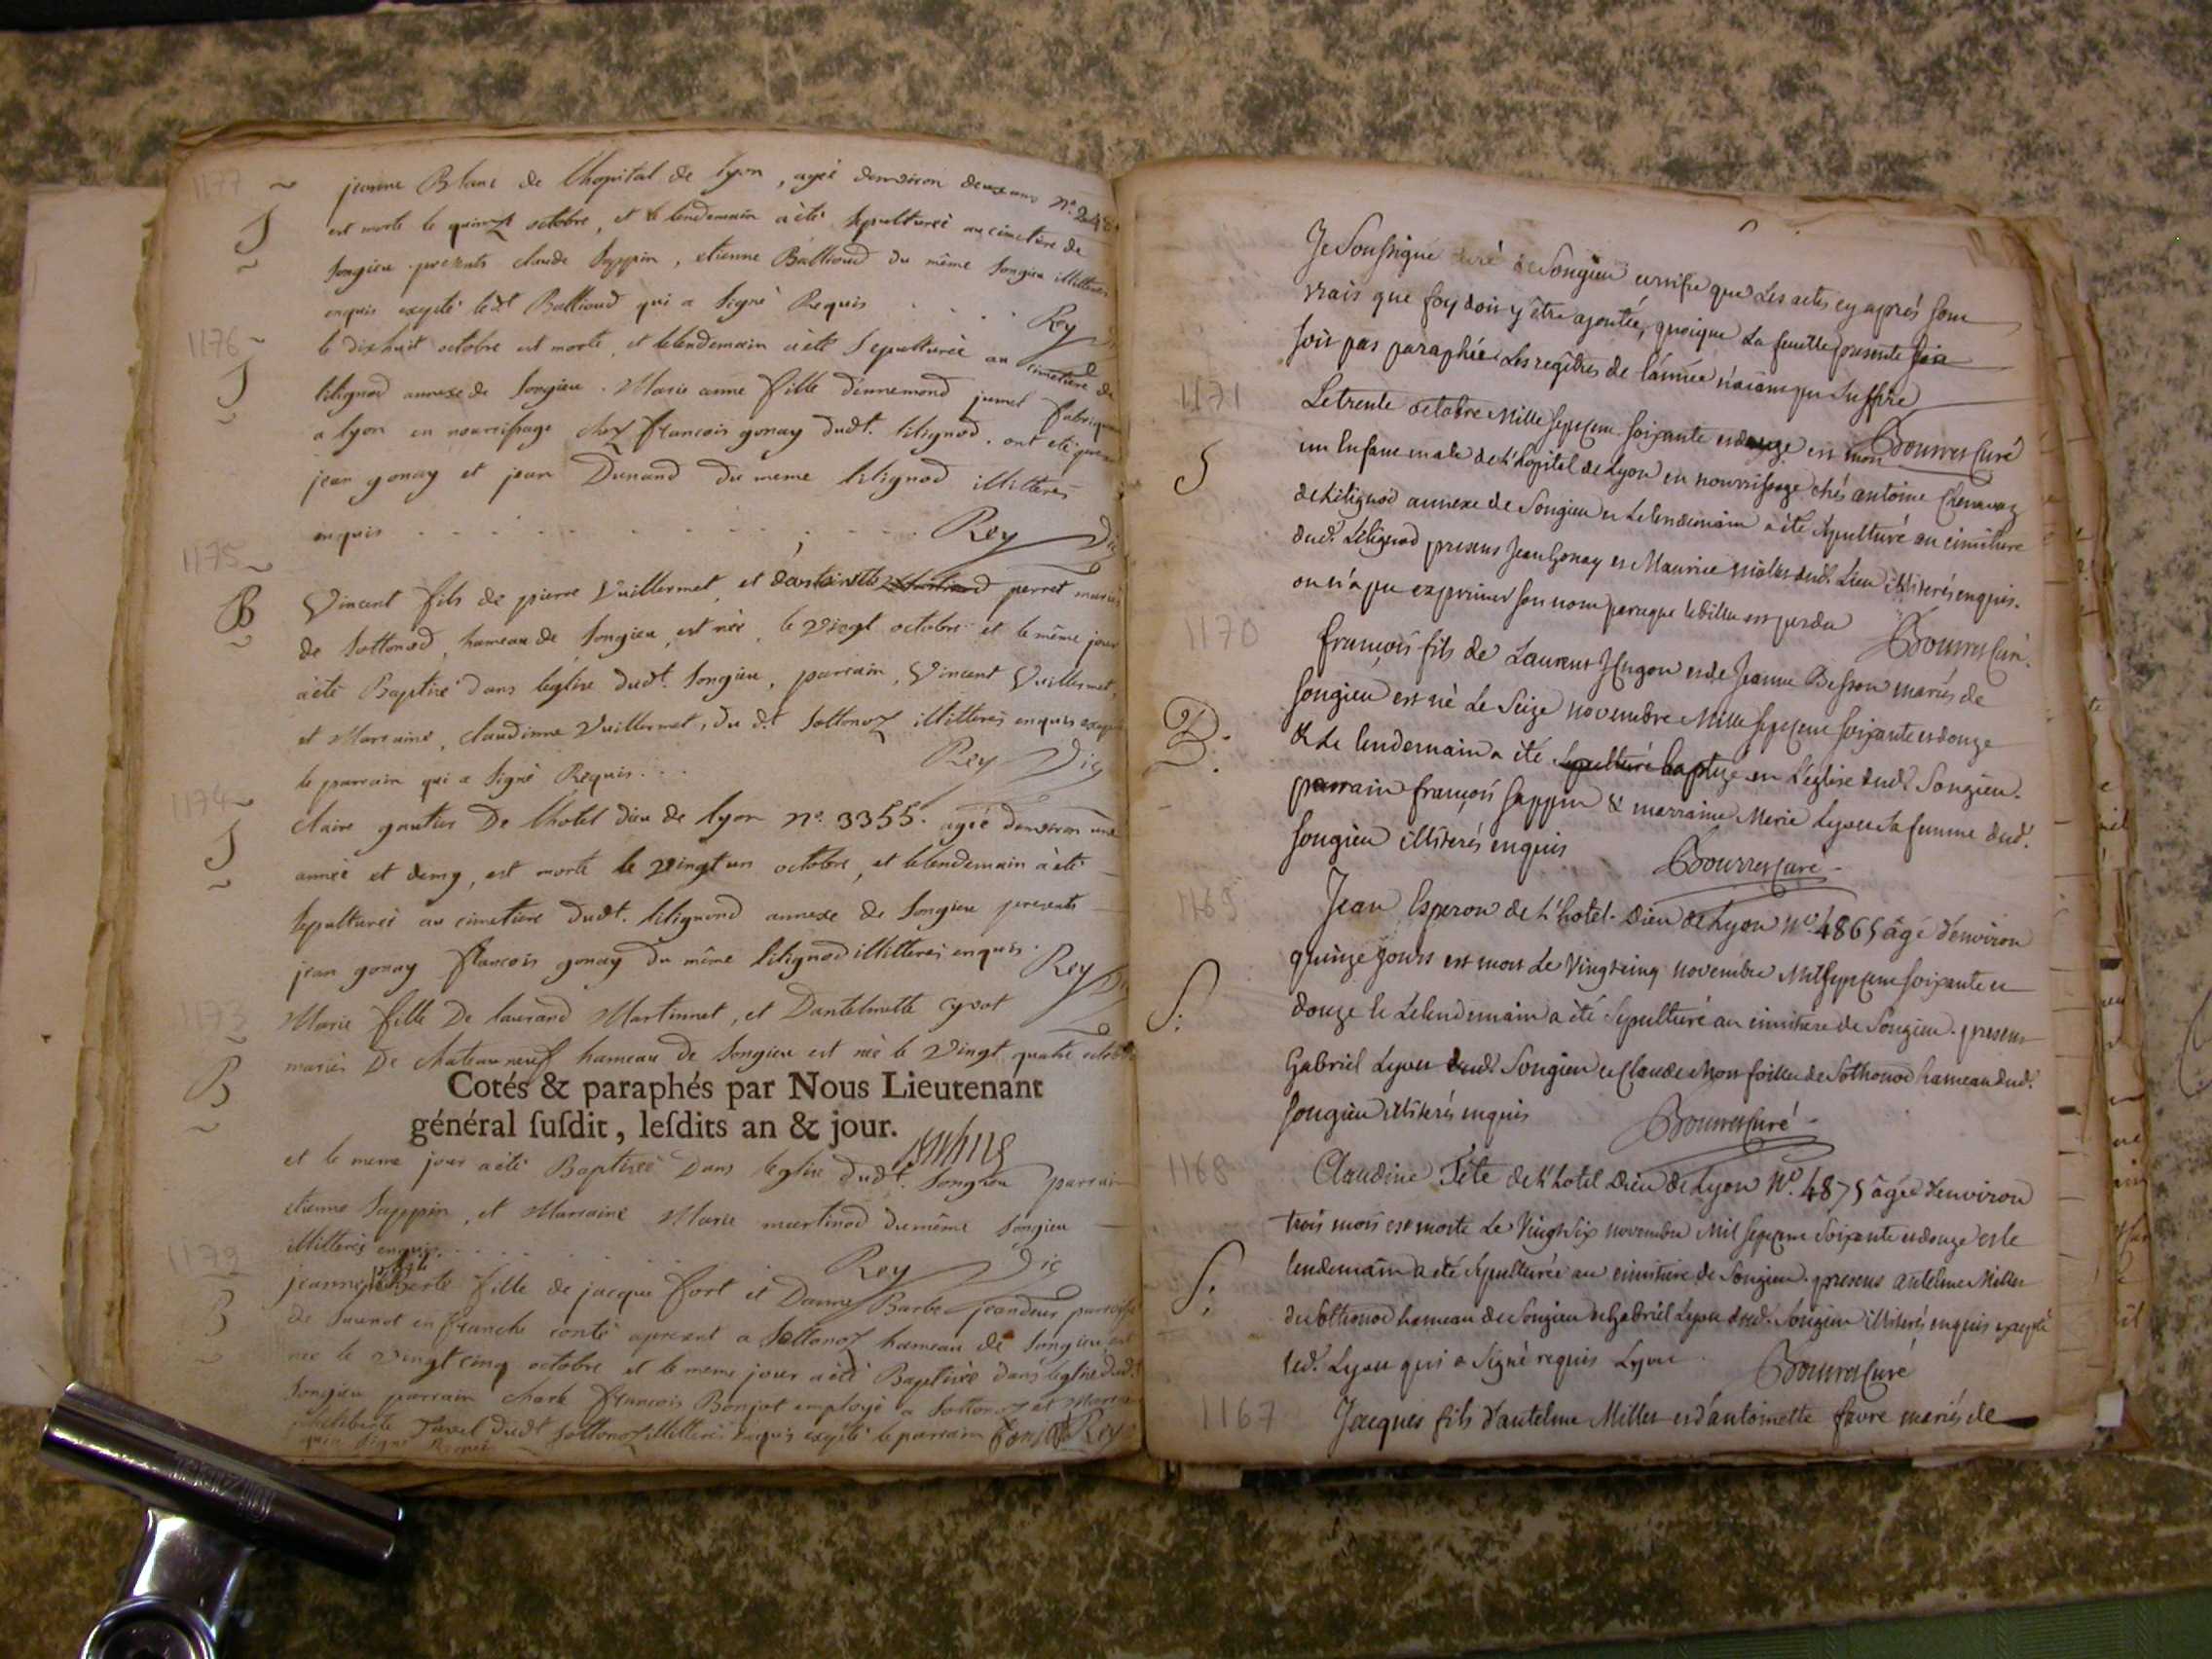 1177
jeanne Blanc de lhopital de lyon, agée denviron deux ans n°.
S
est morte le quinze octobre, et le lendemain a été sepulturée au cimetière de
Songieu presents claude Sappin, etienne Balliaud du même Songieu illitteres
enquis excepté ledt Balliaud qui a signé Requis . . . . Rey
1176
le dixhuit octobre est morte, et lelendemain a eté Sepulturée au cimetiere de
S
lilignod annexe de Songieu. Marie anne fille dennemond jumel fabriquant
a lyon en nourrissage chez francois gonay dudt. lilignod. ont eté
jean gonay et jean Dunand du meme lilignod illitteres
enquis . . . . . . . . Rey
1175
B
Vincent fils de pierre Vuillermet, et dantoinette perret mariés
de Sottonod, hameau de Songieu, est née, le vingt octobre et le même jour
a été Baptisé dans leglise dudt. Songieu, parrain, Vincent Vuillermet,
et Marraine, claudinne Vuillermet, du dt. Sottonoz illitterés enquis excepté
le parrain qui a signé Requis . . . Rey
1174
S
Claire gautier De lhotel dieu de lyon n°. 3355. agée denviron une
année et demy, est morte le vingt un octobre, et lelendemain a eté
sepulturée au cimetiere dudt. lilignond annexe de Songieu presents
jean gonay francois gonay du même lilignod illitterés enquis. Rey
1173
B
Marie fille De laurand Martinnet, et Dantelmette cyvot
mariés De chateauneuf hameau de Songieu est née le vingt quatre octobre
Cotés & paraphés par Nous Lieutenant
général ſuſdit, leſdits an & jour.
et le meme jour a été Baptisée Dans leglise dudt. Songieu parrain
etienne Sappin, et Marraine Marie martinod du même Songieu
illitterés enquis. . . . . Rey
1172
B
jeanne fille de jacque fort et Danne Barbe jeandeur paroisse
de en franche conté apresent a Sottonoz hameau de Songieu, est
née le vingt cinq octobre et le meme jour a été Baptisée dans leglise dudt.
Songieu parrain charle francois Bonjot employé a Sottonoz et
Tavel dudt Sottonoz illitterés enquis excepté le parrain Rey
qui a signé Requis
Je Soussigné curé de Songieu certifie que Les actes cy après sont
vrais que foy doit y être ajoutée, quoique La feuille presente
soit pas paraphée Les regîtres de l'année n'aiant pu suffire
Bourres Curé
1171
S
Le trente octobre Mille Septcent soixante et douze est mort
un Enfant male de L'hopital de Lyon en nourrissage chés antoine Chenavaz
de Lilignod annexe de Songieu et Le lendemain a été sépulturé au cimitiere
dudt. Lilignod presens Jean Gonay et Maurice dudt. Lieu illiterés enquis.
on n'a pu exprimer son nom parceque le billet est perdu Bourres Curé.
1170
B.
françois fils de Laurent Hugon et de Jeanne Besson mariés de
Songieu est né Le Seize novembre Mille Septcent soixante et douze
& Le lendemain a été sepulturé baptizé en L'église dudt. Songieu.
parrain françois Sappin & marraine Marie Lyon sa femme dudt.
Songieu illiterés enquis Bourres Curé
1169
S.
Jean Esperon de L'hotel-Dieu de Lyon n°. 4865 âgé d'environ
quinze jours est mort Le Vingtcinq novembre Mil Septcent soixante et
douze et Le lendemain a été Sepulturé au cimitiere de Songieu. presens
Gabriel Lyon dudt. Songieu et Claude Monfoillet de Sothonod hameau dudt.
Songieu illiterés enquis Bourres Curé
1168
S.
Claudine Fête de l'hotel Dieu de Lyon n°. 4875 âgée d'environ
trois mois est morte Le Vingt Six novembre Mil Septcent Soixante et douze et le
lendemain a été sepulturée au cimitiere de Songieu. presens antelme Millet
de Sothonod hameau de Songieu et Gabriel Lyon dudt. Songieu illiterés enquis excepté
ledt. Lyon qui a signé requis Lyon. Bourres Curé
1167
Jacques fils d'antelme Millet et d'antoinette favre mariés de